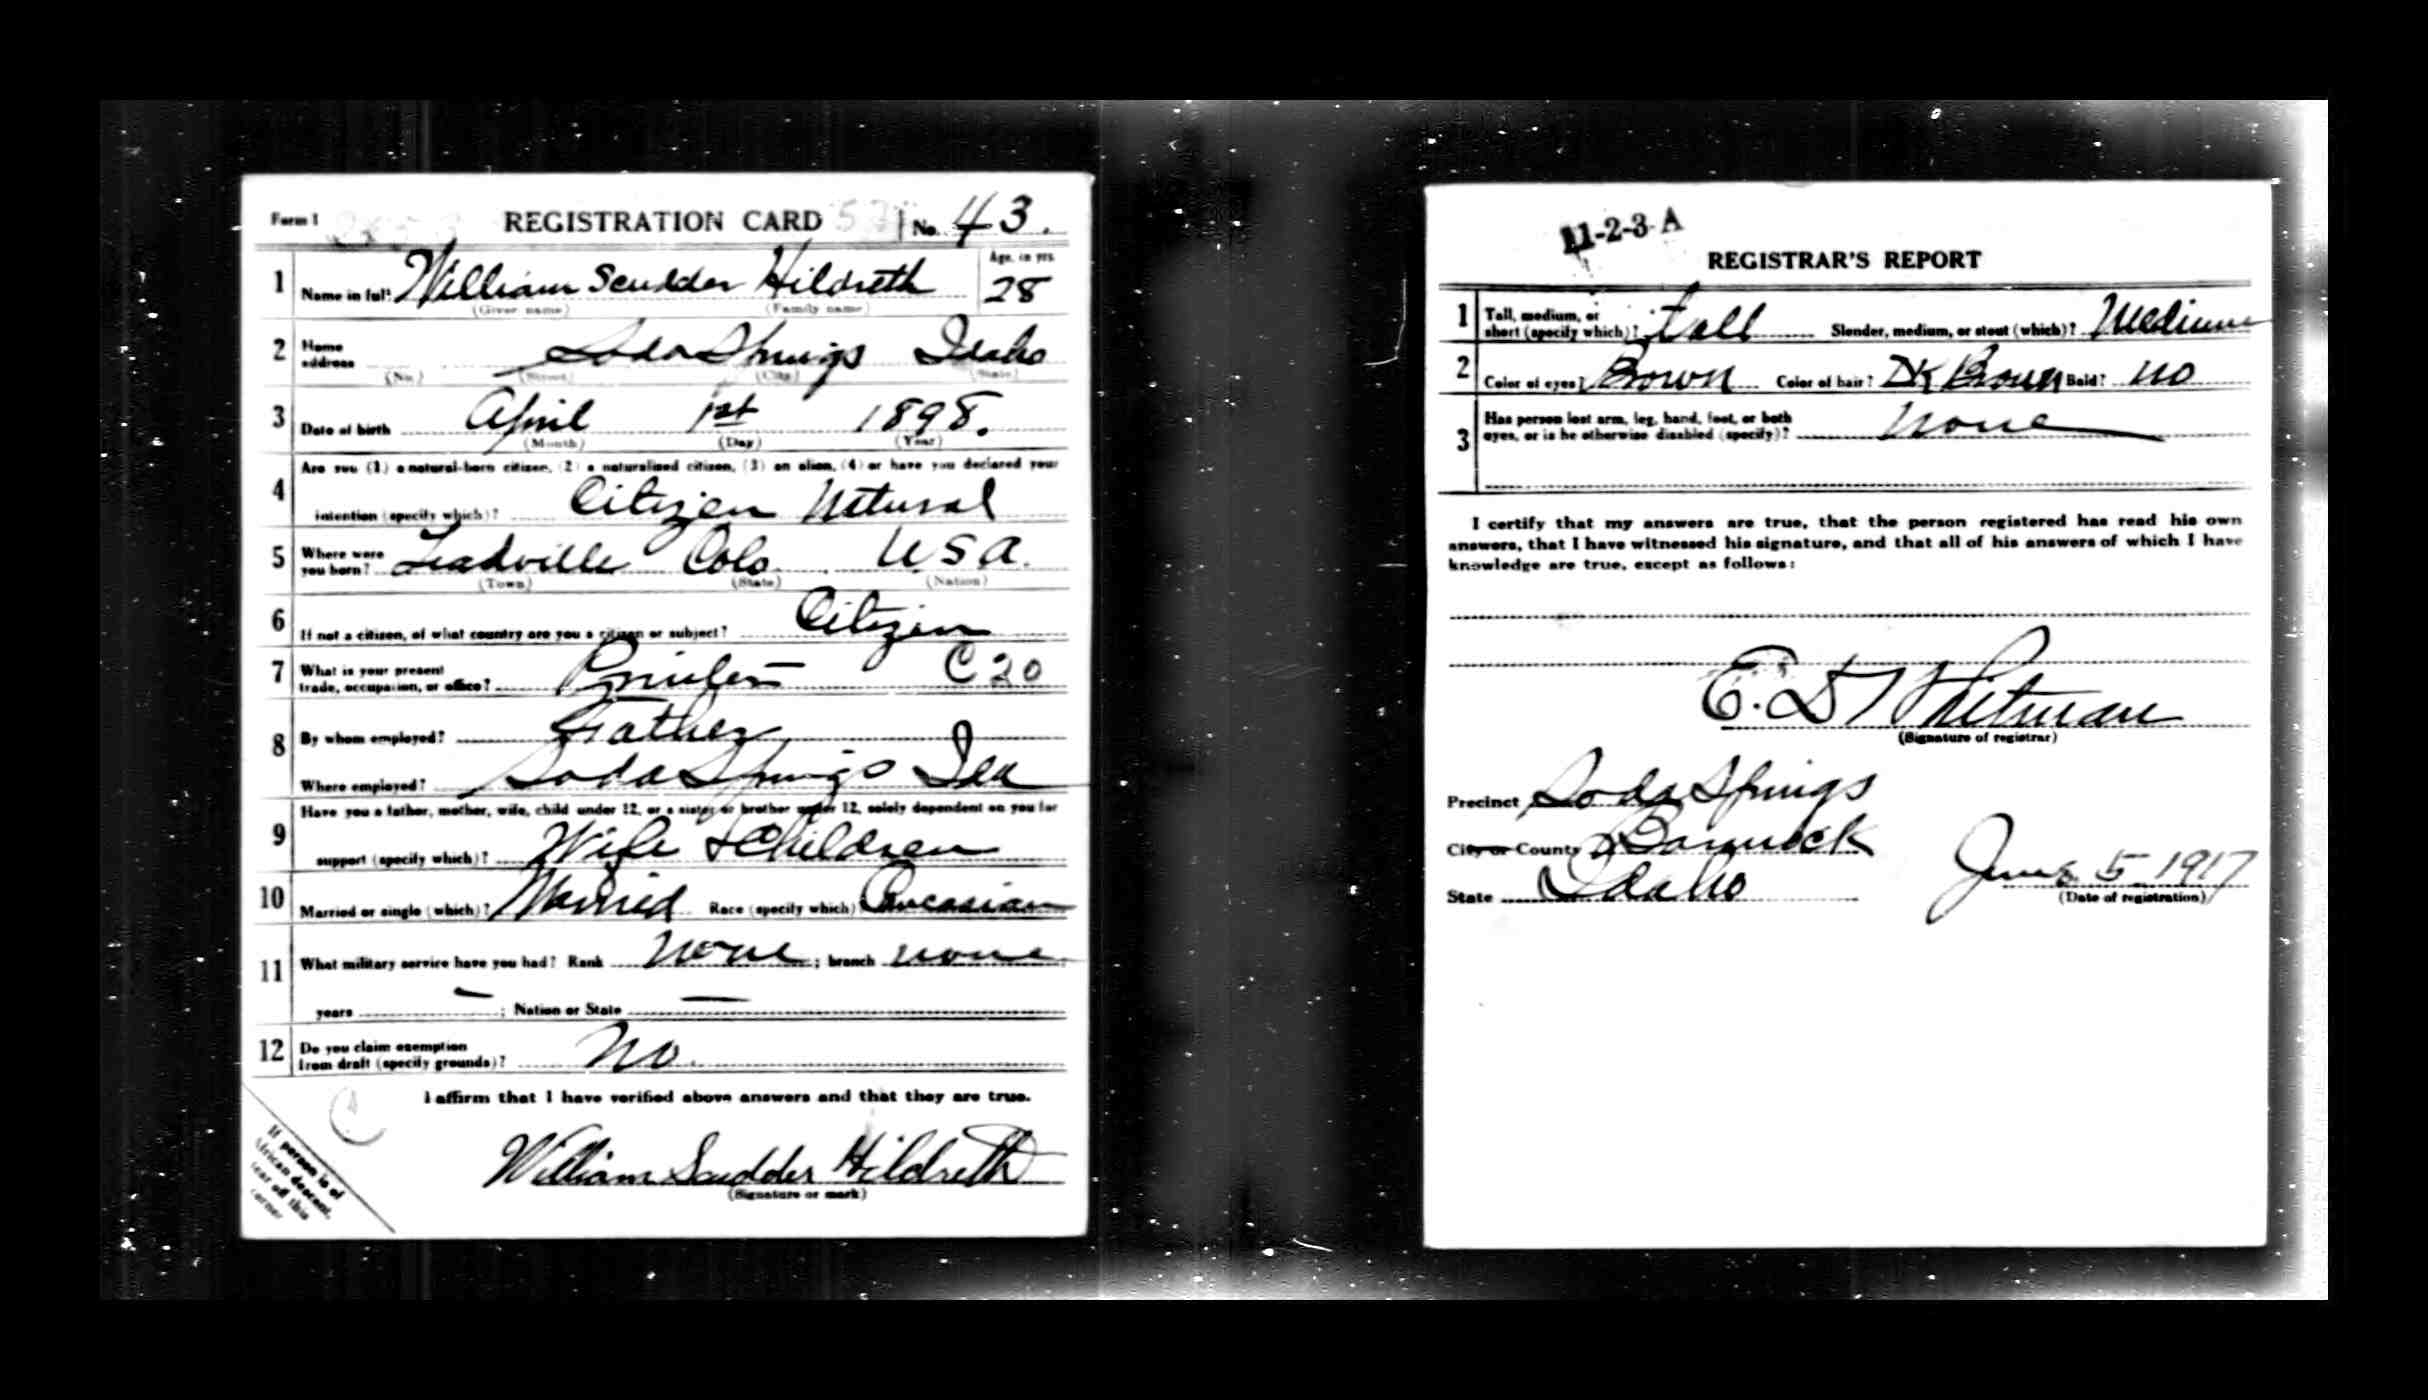 Form 1 REGISTRATION CARD No. 43.
1 Name in full William Scudder Hildreth Age, in yrs. 28
(Given name) (Family name)
2 Home address Soda Springs Idaho
(No.) (Street) (City) (State)
3 Date of birth April 1st 1898.
(Month) (Day) (Year)
4 Are you (1) a natural-born citizen, (2) a naturalized citizen, (3) an alien, (4) or have you declared your
intention (specify which)? Citizen Natural
5 Where were you born? Leadville Colo U S A.
(Town) (State) (Nation)
6 If not a citizen, of what country are you a citizen or subject? Citizen
7 What is your present trade, occupation, or office? Printer C 20
8 By whom employed? Father
Where employed? Soda Springs Ida
9 Have you a father, mother, wife, child under 12, or a sister or brother under 12, solely dependent on you for
support (specify which)? Wife & Children
10 Married or single (which)? Married Race (specify which) Caucasian
11 What military service have you had? Rank none ; branch none
years — ; Nation or State —
12 Do you claim exemption from draft (specify grounds)? No.
I affirm that I have verified above answers and that they are true.
William Scudder Hildreth
(Signature or mark)
If person is of
African descent,
tear off this
corner
11-2-3-A
REGISTRAR'S REPORT
1 Tall, medium, or short (specify which)? tall Slender, medium, or stout (which)? Medium
2 Color of eyes? Brown Color of hair? DK Brown Bald? no
3 Has person lost arm, leg, hand, foot, or both eyes, or is he otherwise disabled (specify)? none
I certify that my answers are true, that the person registered has read his own
answers, that I have witnessed his signature, and that all of his answers of which I have
knowledge are true, except as follows:
E. D Whitman
(Signature of registrar)
Precinct Soda Springs
City or County Bannock
State Idaho June 5 1917
(Date of registration)